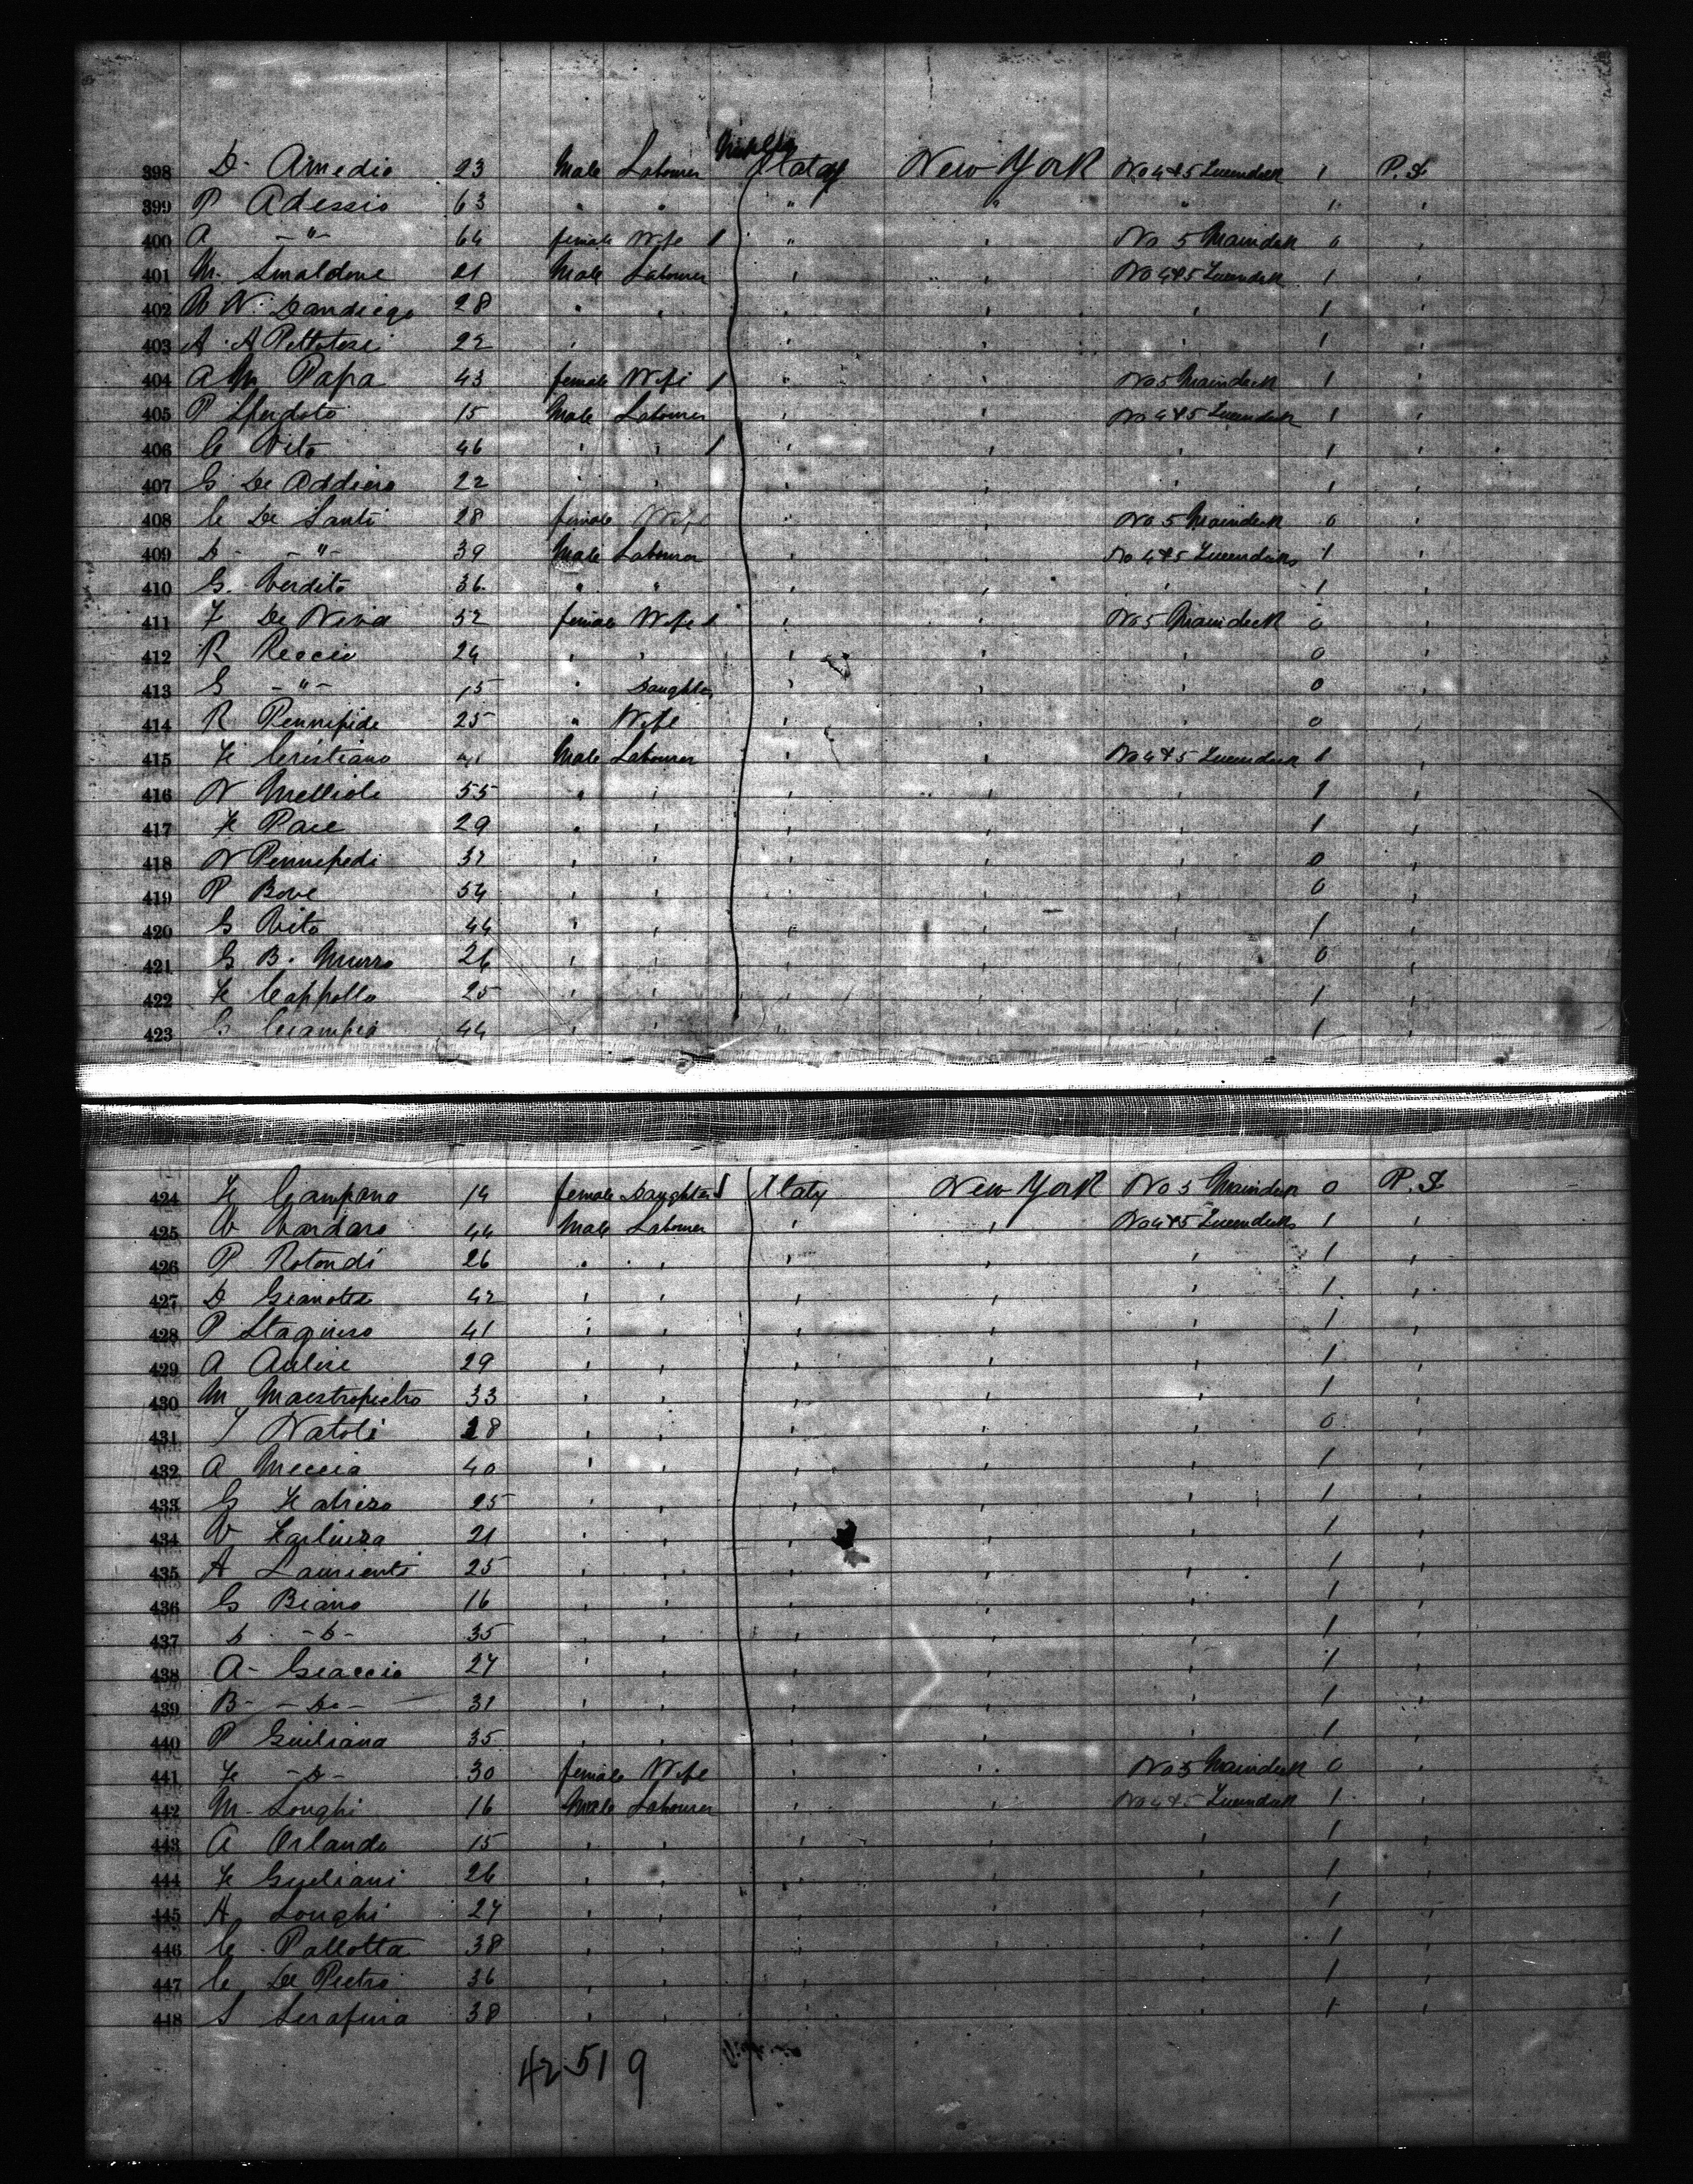 398 D. Amedio 23 Male Labourer Italy New York No 4 & 5 1 P. S.
399 P Adessio 63 " " " " " 1 "
400 A -"- 64 female Wife / " " No 5 Maindeck 0 "
401 M. Smaldone 21 Male Labourer " " No 4&5 1 "
402 N. Sandiego 28 " " " " " 1 "
403 A. A 22 " " " " " 1 "
404 A M Papa 43 female Wife / " " No 5 Maindeck 1 "
405 P 15 Male Labourer " " No 4&5 1 "
406 C Vito 46 " " / " " " 1 "
407 G De Addiero 22 " " " " " 1 "
408 C De Santi 28 female Wife " " No 5 Maindeck 0 "
409 D -"- 39 Male Labourer " " No 4&5 1 "
410 G. Verdito 36 " " " " " 1 "
411 F De Nina 52 female Wife / " " No 5 Maindeck 0 "
412 R Reccio 24 " " " " " 0 "
413 G -"- 15 " Daughter " " " 0 "
414 R Pennepide 25 " Wife " " " 0 "
415 F Cristiano 41 Male Labourer " " No 4&5 1 "
416 N Mellioli 55 " " " " " 1 "
417 F Pace 29 " " " " " 1 "
418 N Pennepedi 37 " " " " " 0 "
419 P Bove 54 " " " " " 0 "
420 G Vito 44 " " " " " 1 "
421 G. B. Murro 26 " " " " " 0 "
422 F Cappollo 25 " " " " " 1 "
423 G Ciampia 44 " " " " " 1 "
424 F Campano 14 female Daughter / Italy New York No 5 Maindeck 0 P. S
425 V Vardaro 44 Male Labourer " " No 4&5 1 "
426 P Rotondi 26 " " " " " 1 "
427 D 42 " " " " " 1 "
428 P Staquiso 41 " " " " " 1 "
429 A 29 " " " " " 1 "
430 M Maestropietro 33 " " " " " 1 "
431 Natoli 28 " " " " " 0 "
432 A Meccia 40 " " " " " 1 "
433 G 25 " " " " " 1 "
434 V 21 " " " " " 1 "
435 A Laurienti 25 " " " " " 1 "
436 G Biano 16 " " " " " 1 "
437 D -D- 35 " " " " " 1 "
438 A- Giaccio 27 " " " " " 1 "
439 B- -Do- 31 " " " " " 1 "
440 P Giuliana 35 " " " " " 1 "
441 F -D- 30 female Wife " " No 5 Maindeck 0 "
442 M- Longhi 16 Male Labourer " " No 4&5 1 "
443 A Orlando 15 " " " " " 1 "
444 F Guiliani 26 " " " " " 1 "
445 A Longhi 27 " " " " " 1 "
446 C Pallotta 38 " " " " " 1 "
447 C De Pietro 36 " " " " " 1 "
448 S Serafina 38 " " " " " 1 "
42519